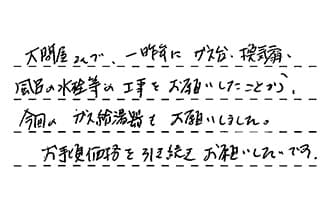 大問屋さんで、一昨年にガス台、換気扇、
風呂の水栓等の工事をお願いしたことから、
今回のガス給湯器もお願いしました。
お手頃価格を引き続きお願いしたいです。